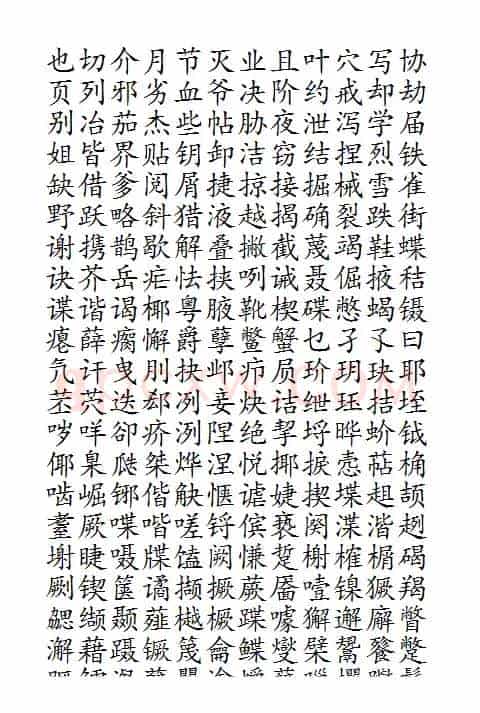 也切介月节灭业且叶穴写协
页列邪劣血爷决阶约戒却劫
别冶茄杰些帖胁夜泄泻学届
姐皆界贴钥卸洁窃结捏烈铁
缺借爹阅屑捷掠接掘械雪雀
野跃略斜猎液越揭确裂跌街
谢携鹊歇解叠撇截蔑竭鞋蝶
诀芥岳疟怯挟咧诫聂倔掖秸
谍谐谒椰粤腋靴楔碟憋蝎镊
瘪薛瘸懈爵孽鳖蟹乜孑孓曰
氕讦曳刖抉邺疖质玠玥玦耶
苤茓迭郄冽妾炔诘绁珏拮垤
哕咩卻疥洌陧绝挈埒晔蚧钺
倻臬瓞桀烨涅悦揶捩悫萜桷
啮崛铘偕觖惬谑婕揳堞趄颉
耋厥喋喈嗟锊傧亵阕渫湝趔
塮睫嗫牒馌阙慊踅榭榷楬碣
劂锲箧谲撷撅蕨靥噎镍獗羯
勰缬颞薤樾橛蹀噱獬邂廨瞥
澥藉蹑镢篾龠鲽燮檗鷽餮蹩